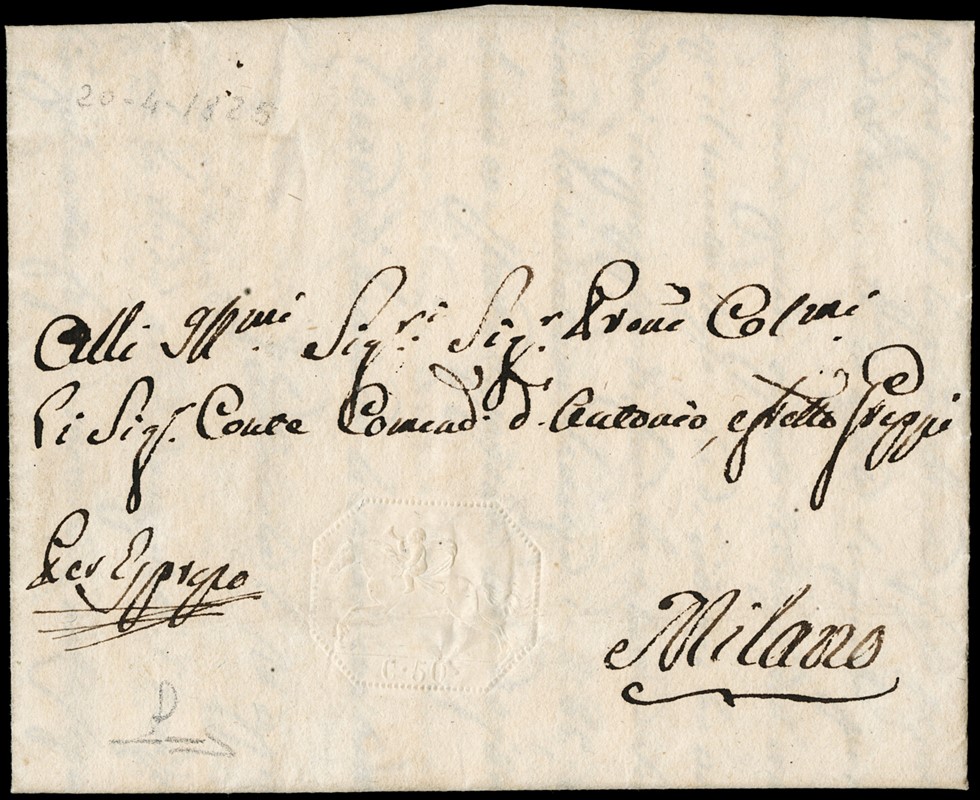 20-4-1825
Alli Illmi Sigri Sigr Proni Colmi
Li Sigr Conte Comend. d. Antonio, e frello Greppi
Per Espresso
C. 50
Milano
D